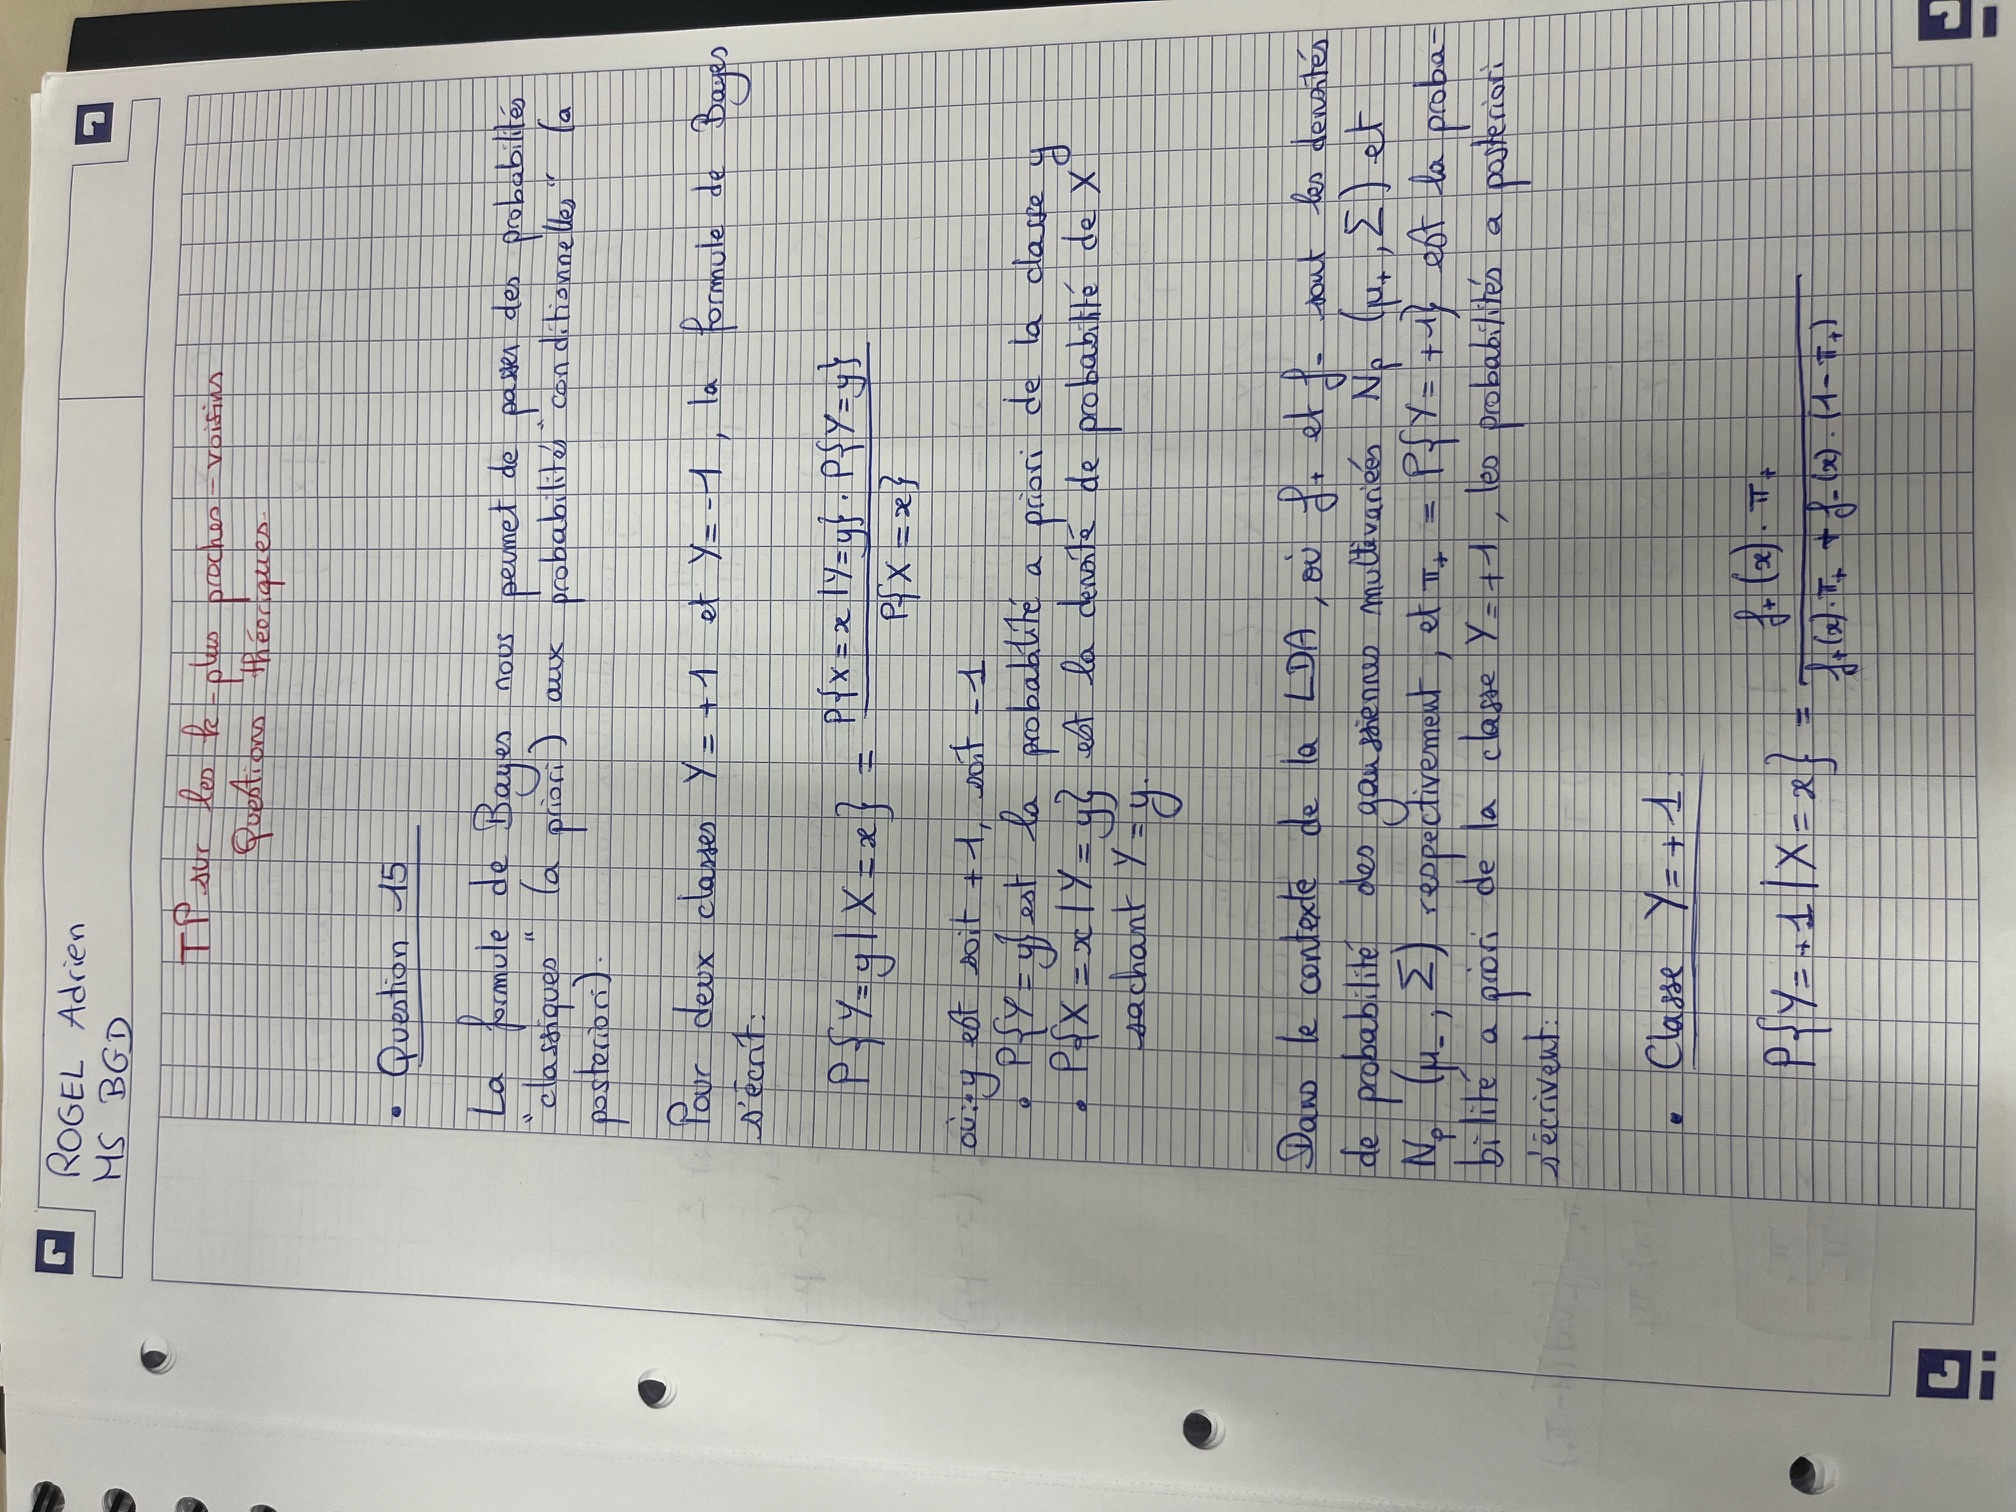 ROGEL Adrien
MS BGD
TP sur les k-plus proches-voisins
Questions théoriques
• Question 15
La formule de Bayes nous permet de passer des probabilités
"classiques" (a priori) aux probabilités "conditionnelles" (a
posteriori).
Pour deux classes Y = +1 et Y = -1, la formule de Bayes
s'écrit:
P{Y = y | X = x} = P{X = x | Y = y} . P{Y = y} / P{X = x}
où: y est soit +1, soit -1
• P{Y = y} est la probabilité a priori de la classe y
• P{X = x | Y = y} est la densité de probabilité de X
sachant Y = y.
Dans le contexte de la LDA, où f₊ et f₋ sont les densités
de probabilité des gaussiennes multivariées Nₚ (μ₊, Σ) et
Nₚ (μ₋, Σ) respectivement, et π₊ = P{Y = +1} est la proba-
bilité a priori de la classe Y = +1, les probabilités a posteriori
s'écrivent:
• Classe Y = +1
P{Y = +1 | X = x} = f₊(x) . π₊ / f₊(x) . π₊ + f₋(x) . (1 - π₊)